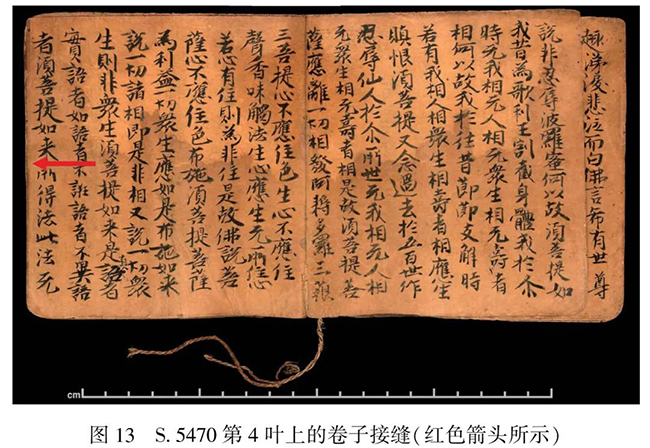 趣涕淚悲泣而白佛言希有世尊
說非忍辱波羅蜜何以故須菩提如
我昔為歌利王割截身體我於尒
時无我相无人相无衆生相无壽者
相何以故我於往昔節節支解時
若有我相人相衆生相壽者相應生
瞋恨須菩提又念過去於五百世作
忍辱仙人於尒所世无我相无人相
无衆生相无壽者相是故須菩提菩
薩應離一切相發阿耨多羅三藐
三菩提心不應住色生心不應住
聲香味觸法生心應生无所住心
若心有住則為非住是故佛說菩
薩心不應住色布施須菩提菩薩
為利益一切衆生應如是布施如来
說一切諸相即是非相又說一切衆
生則非衆生須菩提如来是真語者
實語者如語者不誑語者不異語
者須菩提如来所得法此法无
cm
图 13 S. 5470 第 4 叶上的卷子接缝(红色箭头所示)